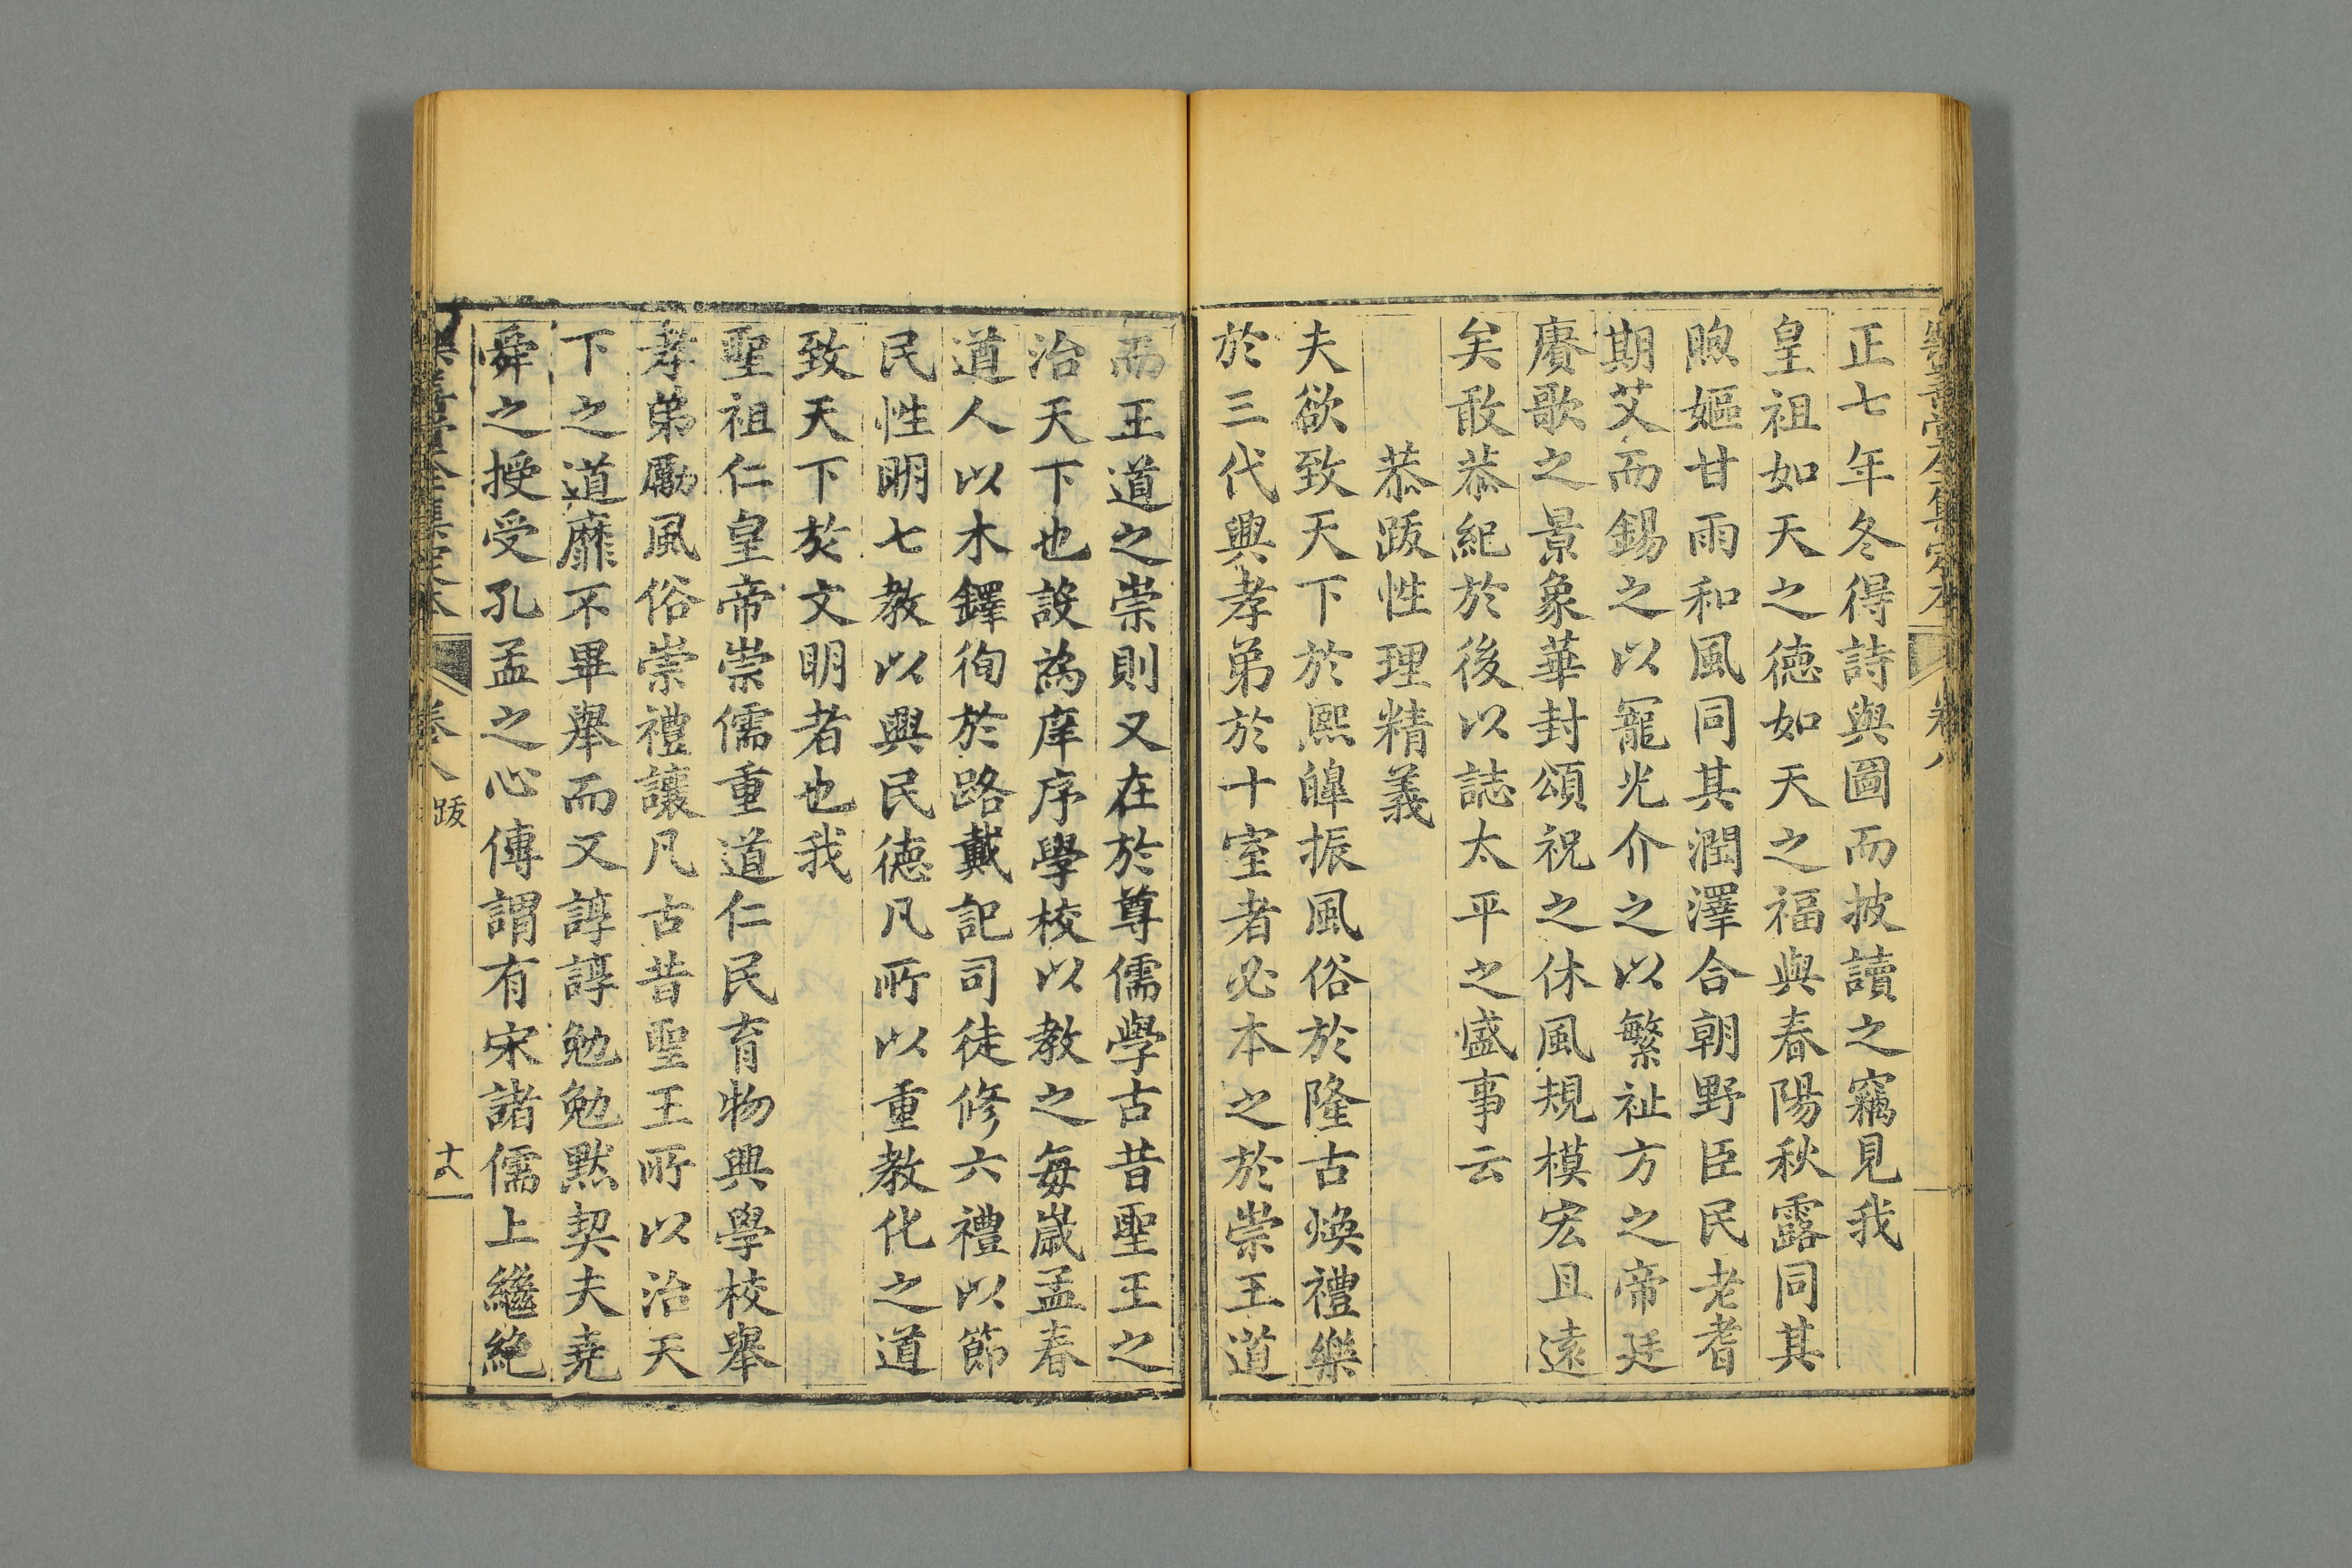 樂善堂全集定本 卷八
正七年冬得詩與圖而披讀之竊見我
皇祖如天之德如天之福與春陽秋露同其
煦嫗甘雨和風同其潤澤合朝野臣民老耆
期艾而錫之以寵光介之以繁祉方之帝廷
賡歌之景象華封頌祝之休風規模宏且遠
矣敢恭紀於後以誌太平之盛事云
恭跋性理精義
夫欲致天下於熙皞振風俗於隆古煥禮樂
於三代興孝弟於十室者必本之於崇王道
而王道之崇則又在於尊儒學古昔聖王之
治天下也設為庠序學校以教之每歲孟春
道人以木鐸徇於路戴記司徒修六禮以節
民性明七教以興民德凡所以重教化之道
致天下於文明者也我
聖祖仁皇帝崇儒重道仁民育物興學校舉
孝弟勵風俗崇禮讓凡古昔聖王所以治天
下之道靡不畢舉而又諄諄勉勉默契夫堯
舜之授受孔孟之心傳謂有宋諸儒上繼絶
樂善堂全集定本 卷八 跋 十八